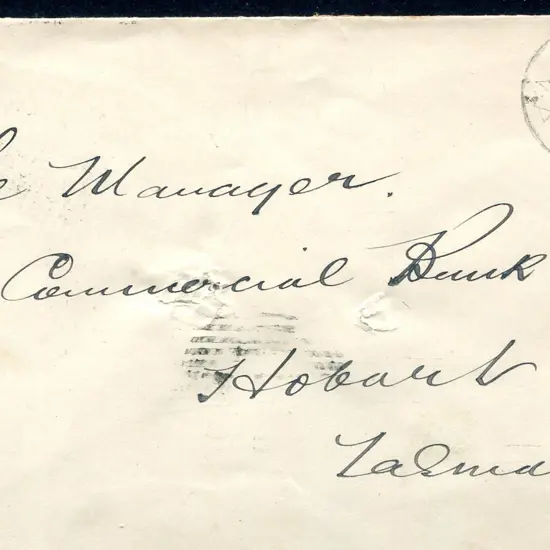 e Manager.
Commercial Bank
Hobart
Tasma